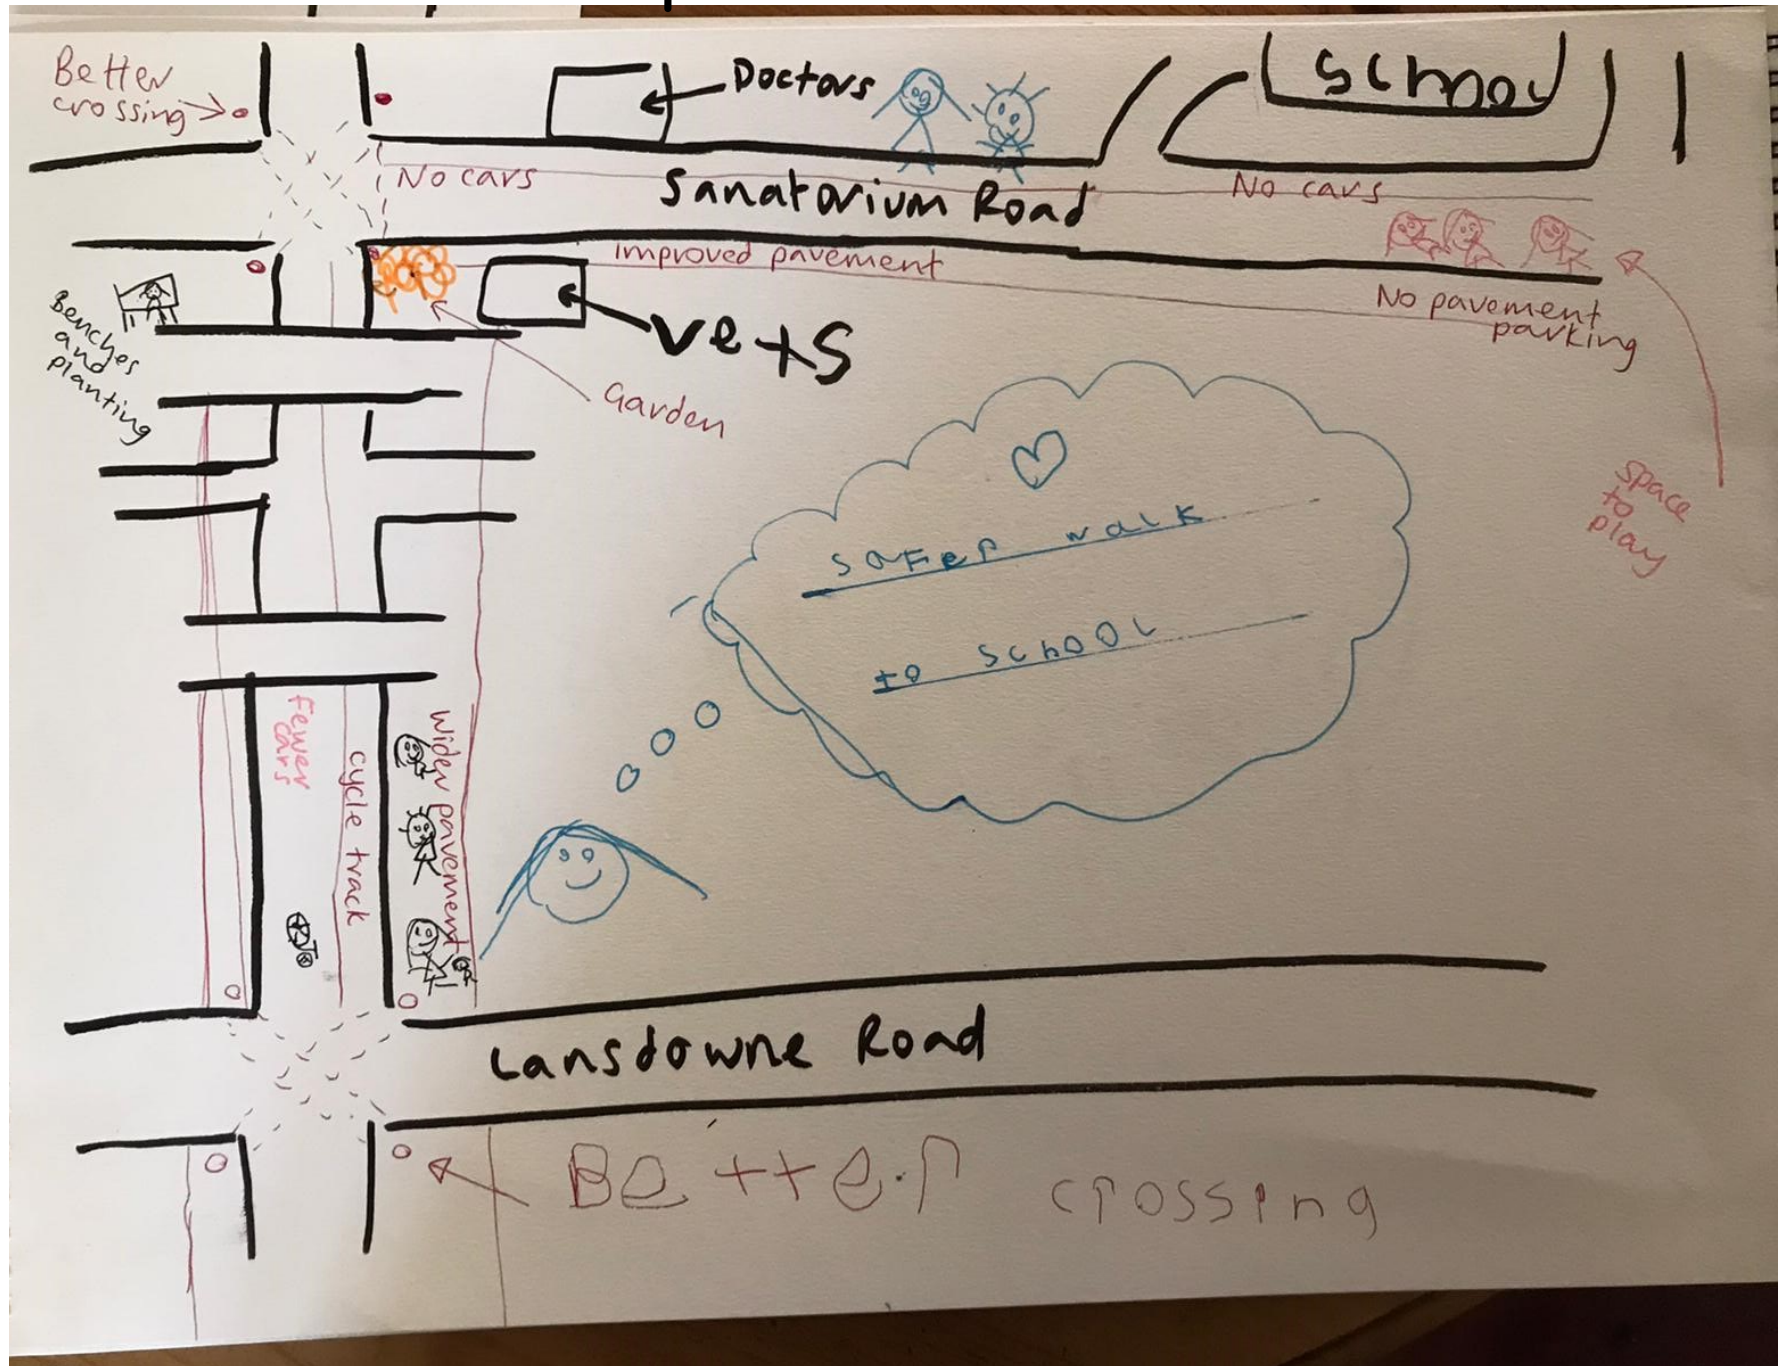 Better
crossing
Doctors
School
No cars
Sanatorium Road
No cars
Improved pavement
No pavement
parking
Benches
and
planting
vets
Garden
space
to
play
safer walk
to school
Fewer
cars
cycle track
Wider pavement
Lansdowne Road
Better crossing